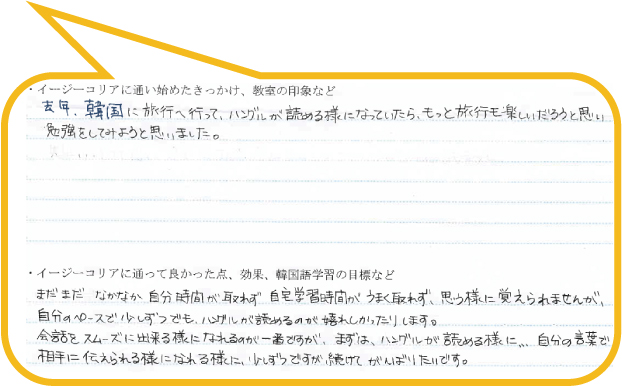 ・イージーコリアに通い始めたきっかけ、教室の印象など
去年、韓国に旅行へ行って、ハングルが読める様になっていたら、もっと旅行も楽しいだろうと思い
勉強をしてみようと思いました。
・イージーコリアに通って良かった点、効果、韓国語学習の目標など
まだまだ なかなか 自分時間が取れず 自宅学習時間が うまく取れず、思う様に覚えられませんが、
自分のペースで少しずつでも、ハングルが読めるのが嬉しかったりします。
会話を スムーズに出来る様になれるのが一番ですが、まずは、ハングルが 読める様に、、、自分の言葉で
相手に 伝えられる様になれる様に、少しずつですが 続けて がんばりたいです。